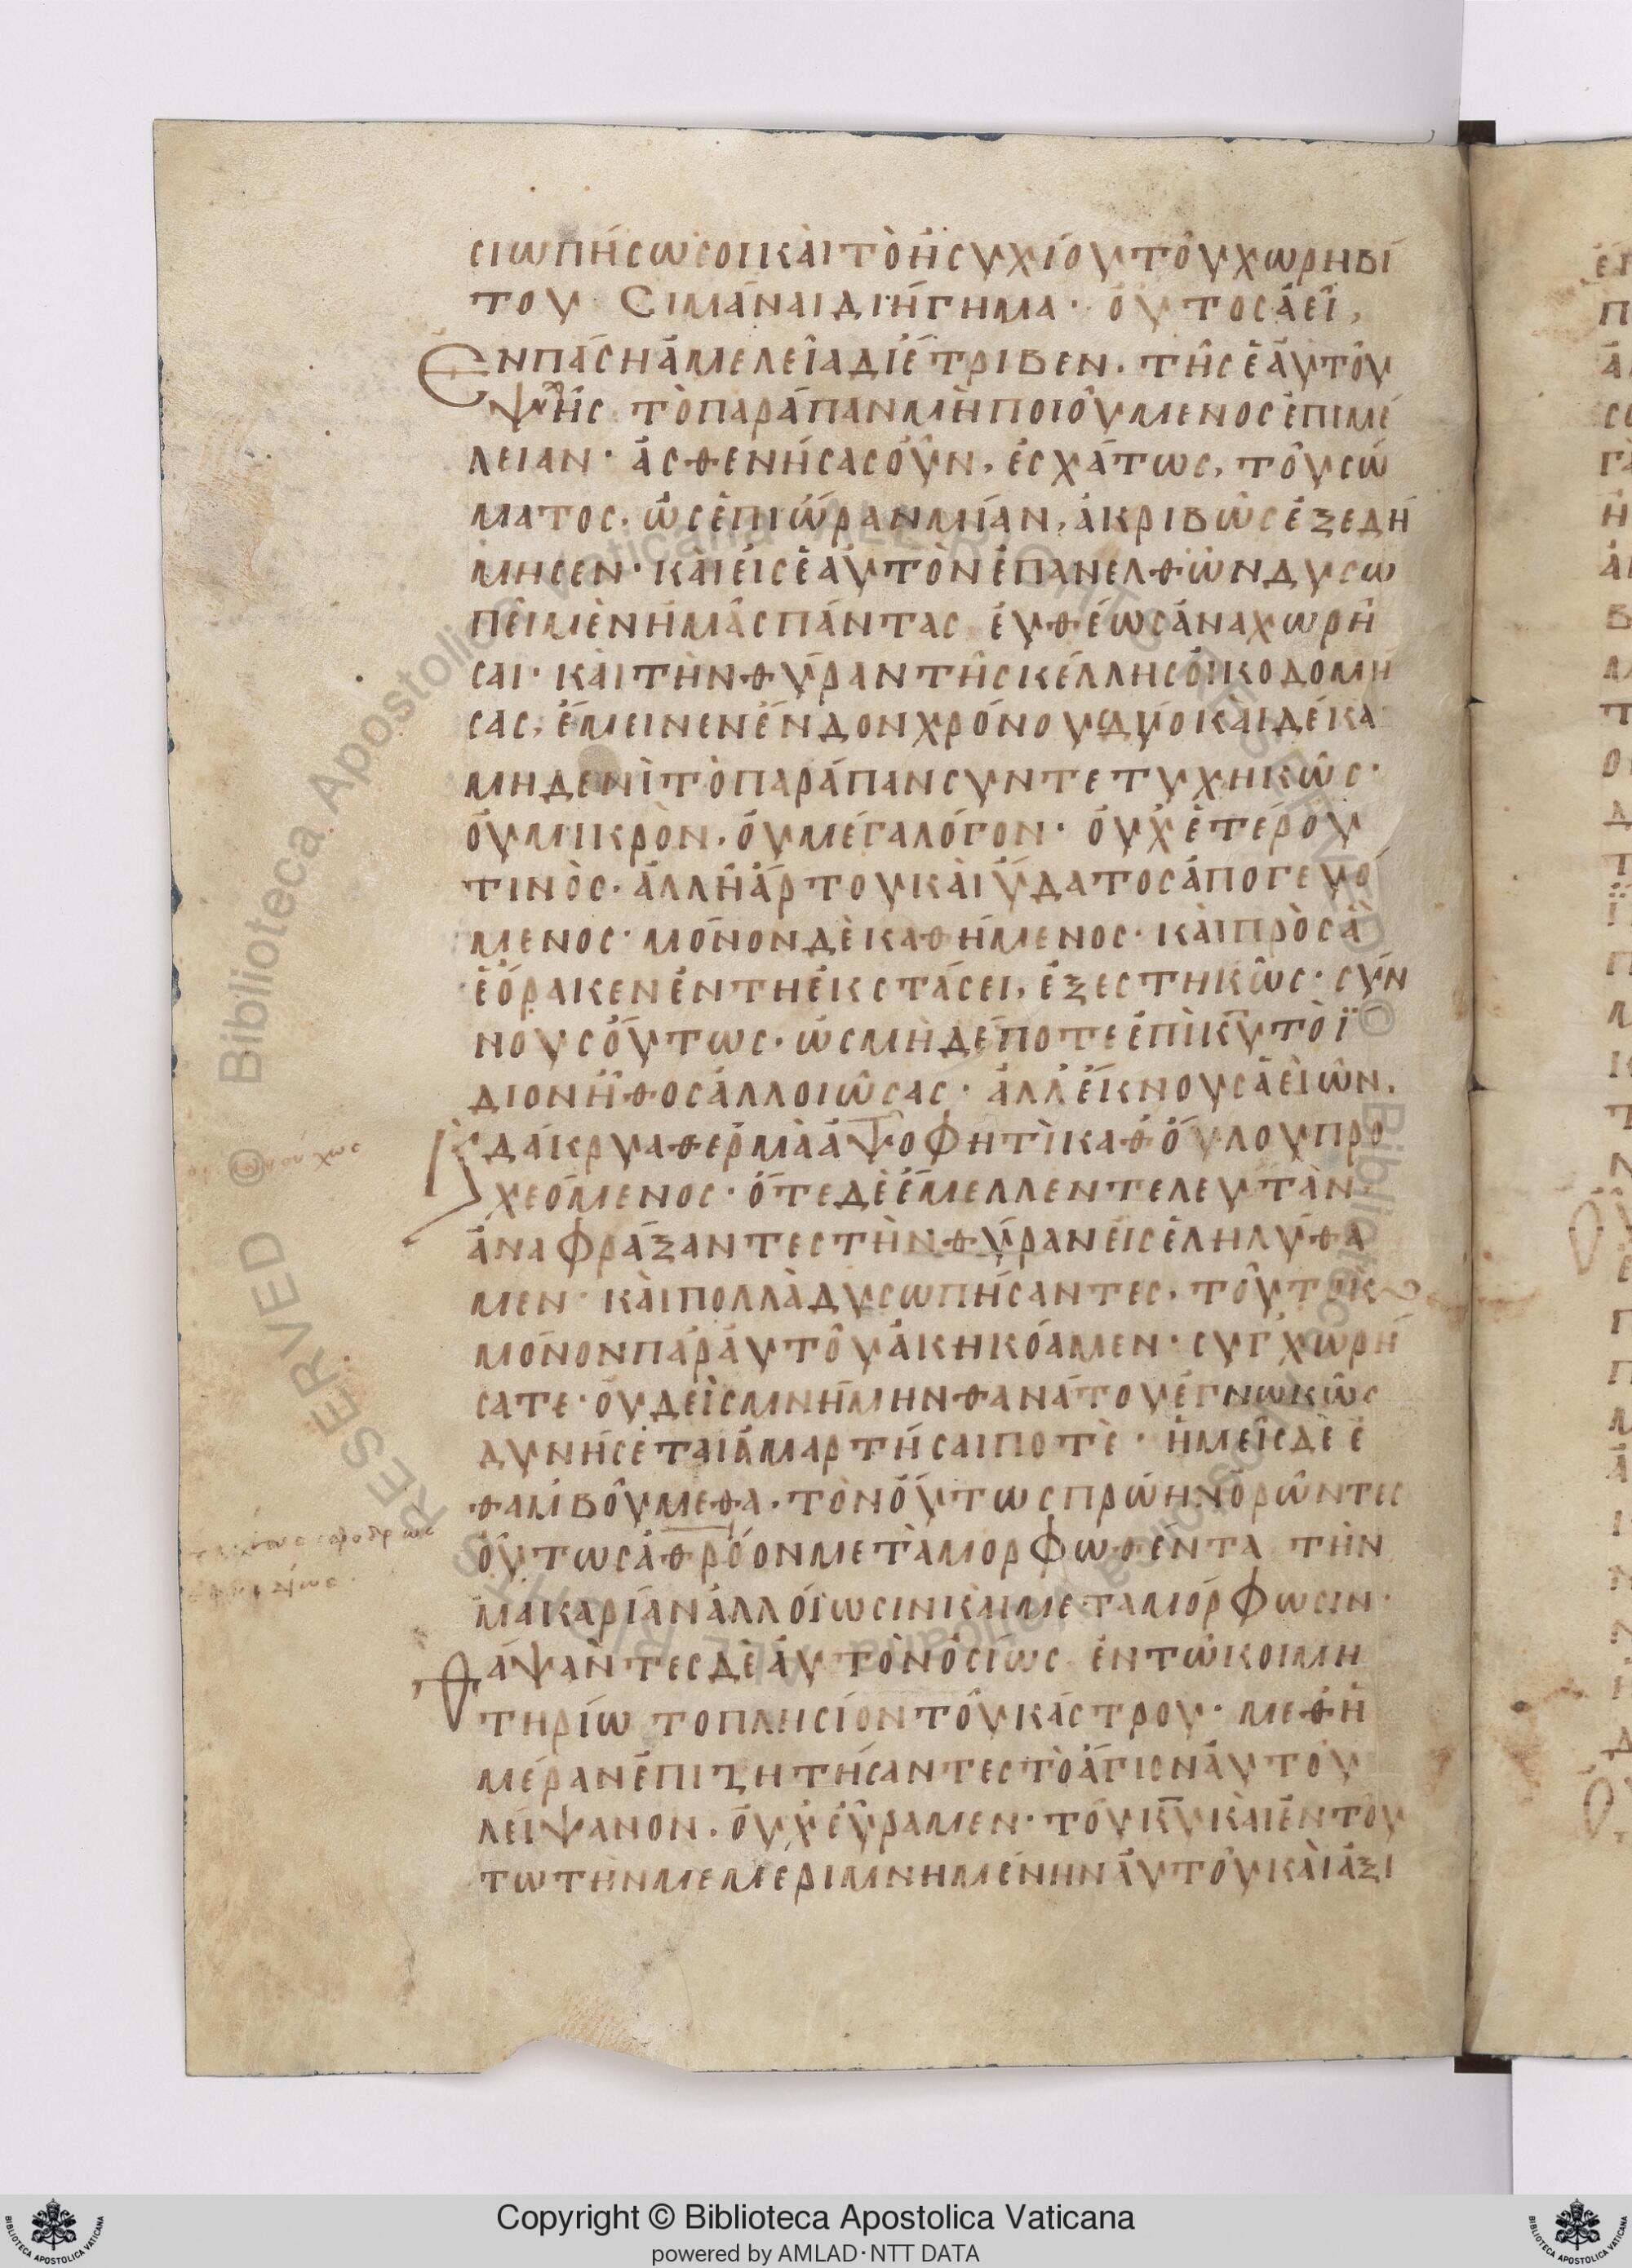 σιωπήσω σοι καὶ τὸ ἡσυχίου τοῦ χωρηβί
του Σιμᾶναι διήγημα· οὗτος ἀεὶ,
Ἐν πάσῃ ἀμελείᾳ διέτριβεν. τῆς ἑαυτοῦ
ψχῆς τὸ παράπαν μὴ ποιούμενος ἐπιμέ
λειαν· ἀσθενήσας οὖν, ἐσχάτως, τοῦ σώ
ματος, ὡς ἐπὶ ὥραν μίαν, ἀκριβῶς ἐξεδή
μησεν· καὶ εἰς ἑαυτὸν ἐπανελθὼν δυσω
πεῖ μὲν ἡμᾶς πάντας εὐθέως ἀναχωρῆ
σαι· καὶ τὴν θύραν τῆς κέλλης οἰκοδομή
σας, ἔμεινεν ἔνδον χρόνους δυοκαίδεκα
μηδενὶ τὸ παράπαν συντετυχηκῶς·
οὐ μικρὸν, οὐ μέγα λόγον· οὐχ ἑτέρου
τινὸς· ἀλλ ἢ ἄρτου καὶ ὕδατος ἀπογευό
μενος· μόνον δὲ καθήμενος· καὶ πρὸς ἃ
ἑόρακεν ἐν τῇ ἐκστάσει, ἐξεστηκῶς· σύν
νους οὕτως· ὡς μηδέποτε ἐπὶ κυτὸ ἴ
διον ἦθος ἀλλοιῶσας· ἀλλ ἔκνους ἀεὶ ὢν.
Κ δάκρυα θερμὰ ἀψοφητὶ καθ ὅλου προ
χεόμενος· ὅτε δὲ ἔμελλεν τελευτὰν
ἀναφράξαντες τὴν θύραν εἰσεληλύθα
μεν· καὶ πολλὰ δυσωπήσαντες, τοῦτο κ
μόνον παρ αὐτοῦ ἀκηκόαμεν· συγχωρή
σατε· οὐδεὶς μνήμην θανάτου ἐγνωκῶς
δυνήσεται ἁμαρτήσαι ποτὲ· ἡμεῖς δὲ ἐ
θαμβούμεθα, τὸν οὕτως πρώην ὁρῶντες
οὕτως ἀθρόον μεταμορφωθέντα τὴν
μακαρίαν ἀλλοίωσιν καὶ μεταμόρφωσιν·
Θάψαντες δὲ αὐτὸν ὁσίως ἐν τῷ κοιμη
τηρίω το πλησίον τοῦ κάστρου· μεθ ἡ
μέραν ἐπιζητήσαντες τὸ ἅγιον αὐτοῦ
λείψανον, οὐχ εὕραμεν· τοῦ κυ καὶ ἐν τού
τω τὴν μεμεριμνημένην αὐτοῦ καὶ ἀξι
Copyright © Biblioteca Apostolica Vaticana
powered by AMLAD·NTT DATA